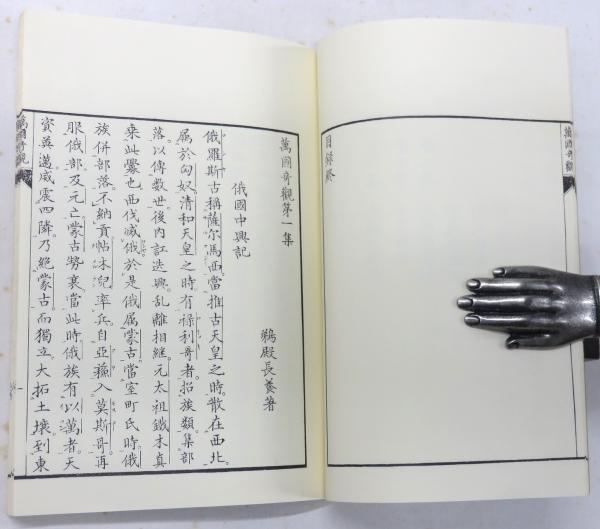 萬國奇觀
目録終
萬國奇觀
萬國奇觀第一集
俄國中興記
鵜殿長養著
俄羅斯古稱薩尔馬西當推古天皇之時散在西北
属於匈奴清和天皇之時有禄利哥者招族類集部
落以傳数世後内訌迭興乱離相継元太祖鐵木真
乗此釁也西伐滅俄於是俄属蒙古當室町氏時俄
族併部落不納貢帖木兒率兵自亞䅳入莫斯哥再
服俄部及元亡蒙古勢衰當此時俄族有以萬者天
資英邁威震四隣乃絶蒙古而獨立大拓土壌到東